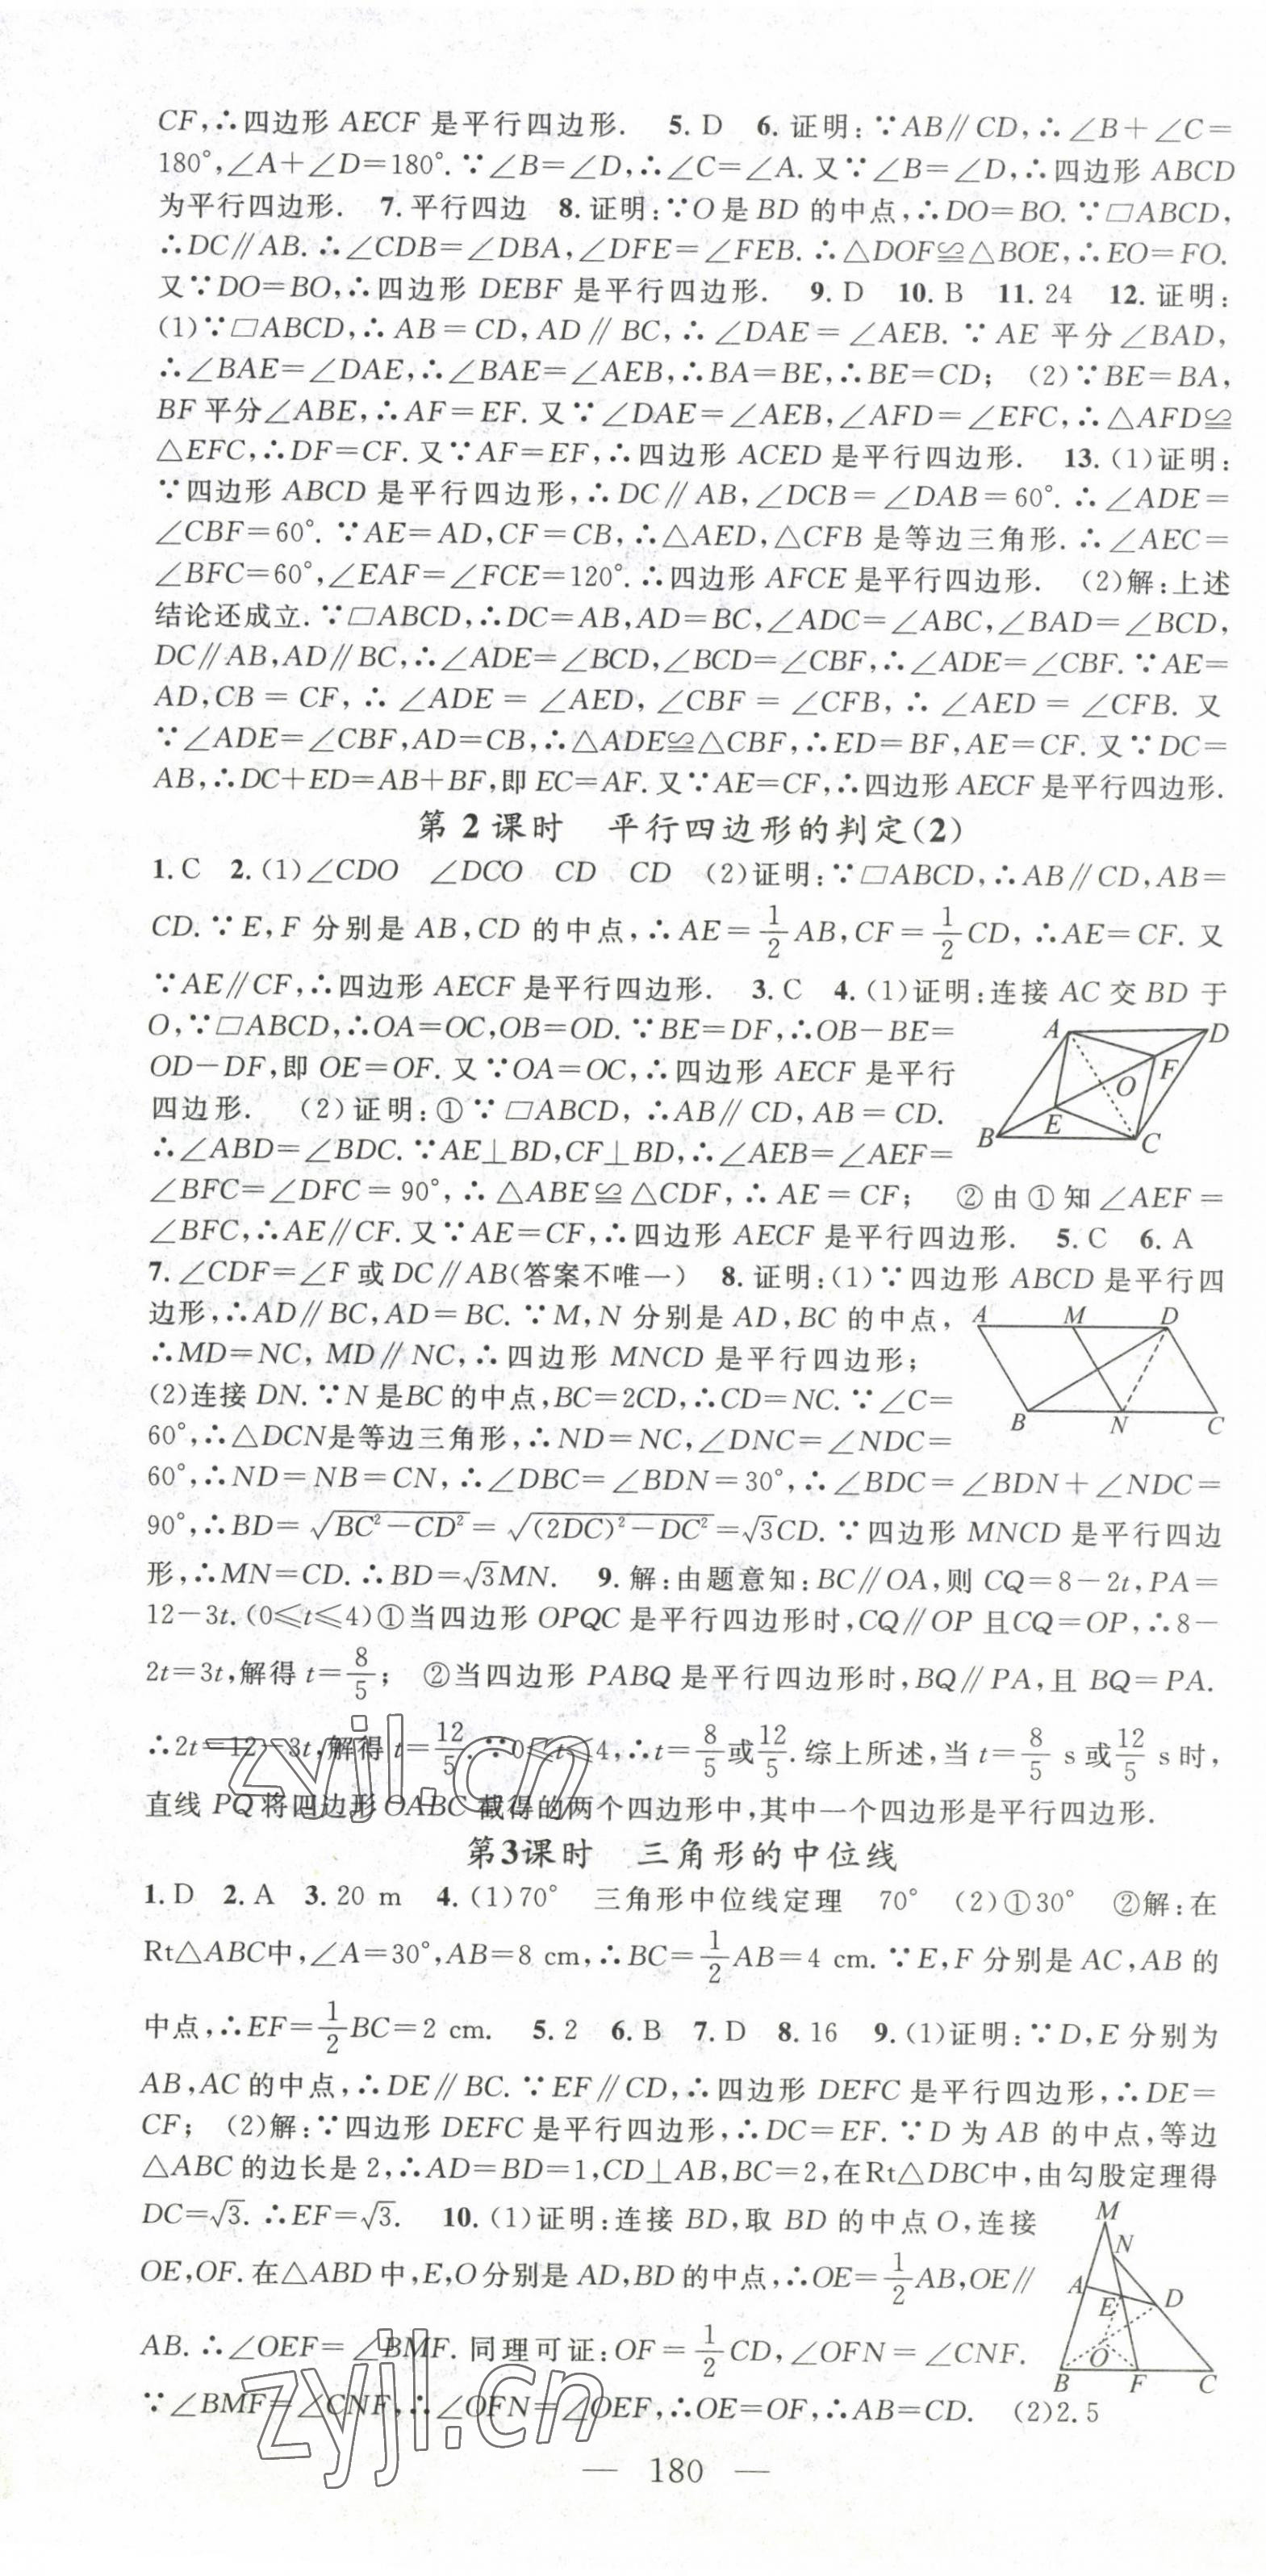 CF,∴四边形 AECF 是平行四边形. 5. D 6. 证明:∵AB∥CD,∴∠B+∠C=
180°,∠A+∠D=180°.∵∠B=∠D,∴∠C=∠A. 又∵∠B=∠D,∴四边形 ABCD
为平行四边形. 7. 平行四边 8. 证明:∵O 是 BD 的中点,∴DO=BO.∵□ABCD,
∴DC∥AB.∴∠CDB=∠DBA,∠DFE=∠FEB.∴△DOF≌△BOE,∴EO=FO.
又∵DO=BO,∴四边形 DEBF 是平行四边形. 9. D 10. B 11. 24 12. 证明:
(1)∵□ABCD,∴AB=CD,AD∥BC,∴∠DAE=∠AEB.∵AE 平分∠BAD,
∴∠BAE=∠DAE,∴∠BAE=∠AEB,∴BA=BE,∴BE=CD; (2)∵BE=BA,
BF 平分∠ABE,∴AF=EF. 又∵∠DAE=∠AEB,∠AFD=∠EFC,∴△AFD≌
△EFC,∴DF=CF. 又∵AF=EF,∴四边形 ACED 是平行四边形. 13. (1)证明:
∵四边形 ABCD 是平行四边形,∴DC∥AB,∠DCB=∠DAB=60°.∴∠ADE=
∠CBF=60°.∵AE=AD,CF=CB,∴△AED,△CFB 是等边三角形.∴∠AEC=
∠BFC=60°,∠EAF=∠FCE=120°.∴四边形 AFCE 是平行四边形. (2)解:上述
结论还成立.∵□ABCD,∴DC=AB,AD=BC,∠ADC=∠ABC,∠BAD=∠BCD,
DC∥AB,AD∥BC,∴∠ADE=∠BCD,∠BCD=∠CBF,∴∠ADE=∠CBF.∵AE=
AD,CB=CF,∴∠ADE=∠AED,∠CBF=∠CFB,∴∠AED=∠CFB. 又
∵∠ADE=∠CBF,AD=CB,∴△ADE≌△CBF,∴ED=BF,AE=CF. 又∵DC=
AB,∴DC+ED=AB+BF,即 EC=AF. 又∵AE=CF,∴四边形 AECF 是平行四边形.
第2课时 平行四边形的判定(2)
1. C 2. (1)∠CDO ∠DCO CD CD (2)证明:∵□ABCD,∴AB∥CD,AB=
CD.∵E,F 分别是 AB,CD 的中点,∴AE=1/2 AB,CF=1/2 CD,∴AE=CF. 又
∵AE∥CF,∴四边形 AECF 是平行四边形. 3. C 4. (1)证明:连接 AC 交 BD 于
O,∵□ABCD,∴OA=OC,OB=OD.∵BE=DF,∴OB-BE=
OD-DF,即 OE=OF. 又∵OA=OC,∴四边形 AECF 是平行
四边形. (2)证明:①∵□ABCD,∴AB∥CD,AB=CD.
∴∠ABD=∠BDC.∵AE⊥BD,CF⊥BD,∴∠AEB=∠AEF=
A D F O B E C
∠BFC=∠DFC=90°,∴△ABE≌△CDF,∴AE=CF; ②由①知∠AEF=
∠BFC,∴AE∥CF. 又∵AE=CF,∴四边形 AECF 是平行四边形. 5. C 6. A
7. ∠CDF=∠F 或 DC∥AB(答案不唯一) 8. 证明:(1)∵四边形 ABCD 是平行四
边形,∴AD∥BC,AD=BC.∵M,N 分别是 AD,BC 的中点,
∴MD=NC,MD∥NC,∴四边形 MNCD 是平行四边形;
(2)连接 DN.∵N 是BC 的中点,BC=2CD,∴CD=NC.∵∠C=
60°,∴△DCN是等边三角形,∴ND=NC,∠DNC=∠NDC=
A M D B N C
60°,∴ND=NB=CN,∴∠DBC=∠BDN=30°,∴∠BDC=∠BDN+∠NDC=
90°,∴BD=√(BC²-CD²)=√((2DC)²-DC²)=√3CD.∵四边形 MNCD 是平行四边
形,∴MN=CD.∴BD=√3MN. 9. 解:由题意知:BC∥OA,则 CQ=8-2t,PA=
12-3t.(0≤t≤4)①当四边形 OPQC 是平行四边形时,CQ∥OP 且CQ=OP,∴8-
2t=3t,解得 t=8/5; ②当四边形 PABQ 是平行四边形时,BQ∥PA,且 BQ=PA.
∴2t=12-3t,解得 t=12/5.∵0≤t≤4,∴t=8/5或12/5.综上所述,当 t=8/5 s或12/5 s时,
直线 PQ 将四边形 OABC 截得的两个四边形中,其中一个四边形是平行四边形.
zyjl.cn
第3课时 三角形的中位线
1. D 2. A 3. 20 m 4. (1)70° 三角形中位线定理 70° (2)①30° ②解:在
Rt△ABC中,∠A=30°,AB=8 cm,∴BC=1/2 AB=4 cm.∵E,F 分别是 AC,AB 的
中点,∴EF=1/2 BC=2 cm. 5. 2 6. B 7. D 8. 16 9. (1)证明:∵D,E 分别为
AB,AC 的中点,∴DE∥BC.∵EF∥CD,∴四边形 DEFC 是平行四边形,∴DE=
CF; (2)解:∵四边形 DEFC 是平行四边形,∴DC=EF.∵D 为 AB 的中点,等边
△ABC 的边长是 2,∴AD=BD=1,CD⊥AB,BC=2,在Rt△DBC中,由勾股定理得
DC=√3.∴EF=√3. 10. (1)证明:连接 BD,取 BD 的中点 O,连接
OE,OF. 在△ABD 中,E,O分别是 AD,BD 的中点,∴OE=1/2 AB,OE∥
AB.∴∠OEF=∠BMF. 同理可证:OF=1/2 CD,∠OFN=∠CNF.
∵∠BMF=∠CNF,∴∠OFN=∠OEF,∴OE=OF,∴AB=CD. (2)2.5
M N A E D O B F C
zyjl.cn
— 180 —